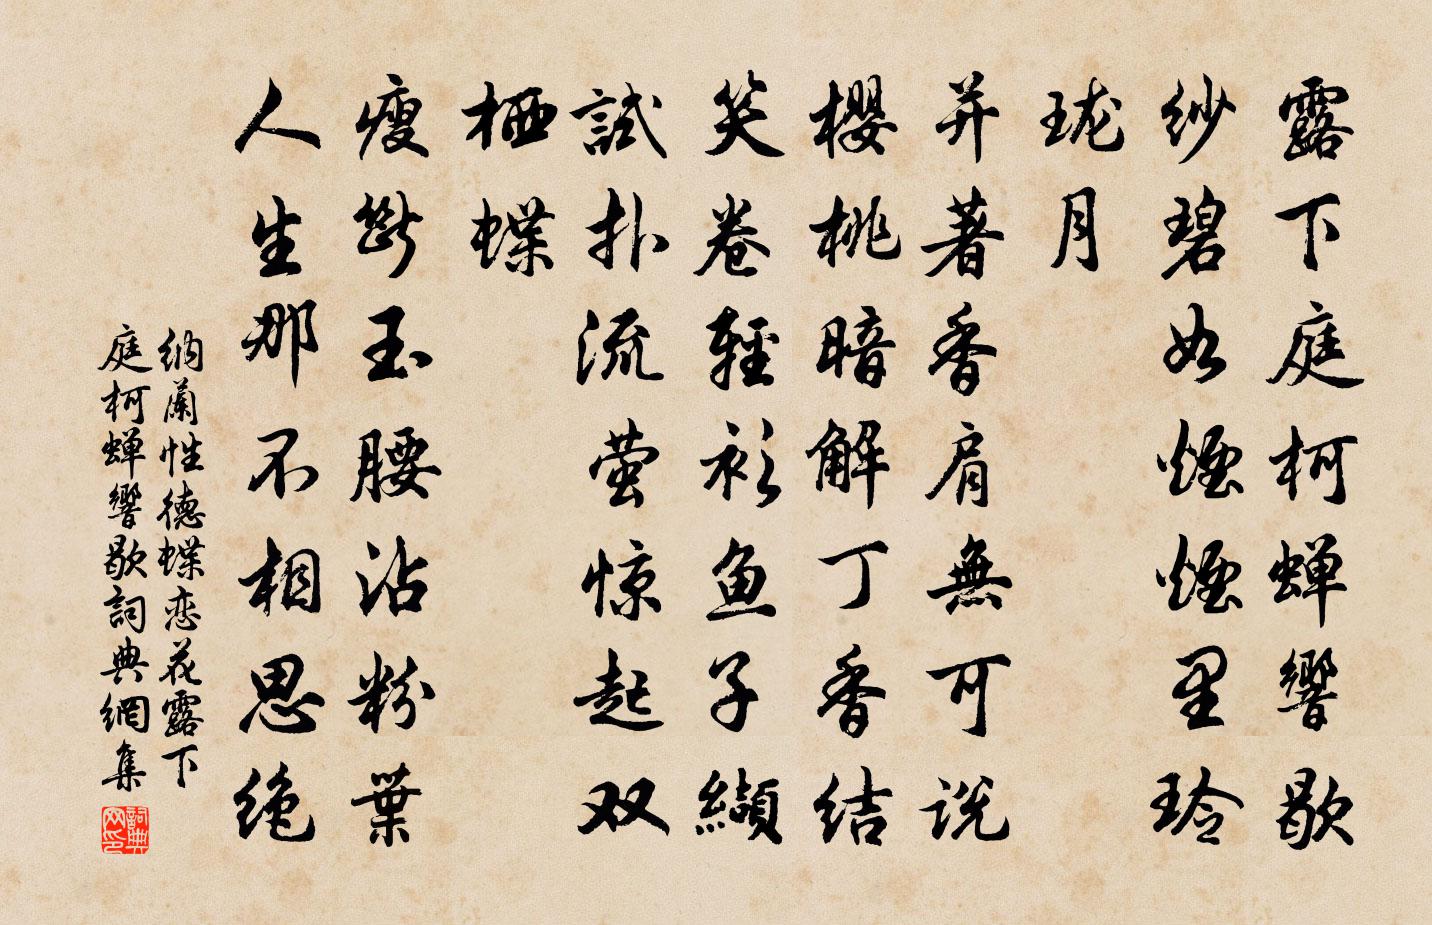 露下庭柯蝉響歇
纱碧如煙煙里玲
珑月
并著香肩無可说
櫻桃暗解丁香结
笑卷輕衫鱼子纈
試扑流萤惊起双
栖蝶
瘦斷玉腰沾粉葉
人生那不相思绝
纳蘭性德蝶恋花露下
庭柯蝉響歇詞典網集
詞典
网印